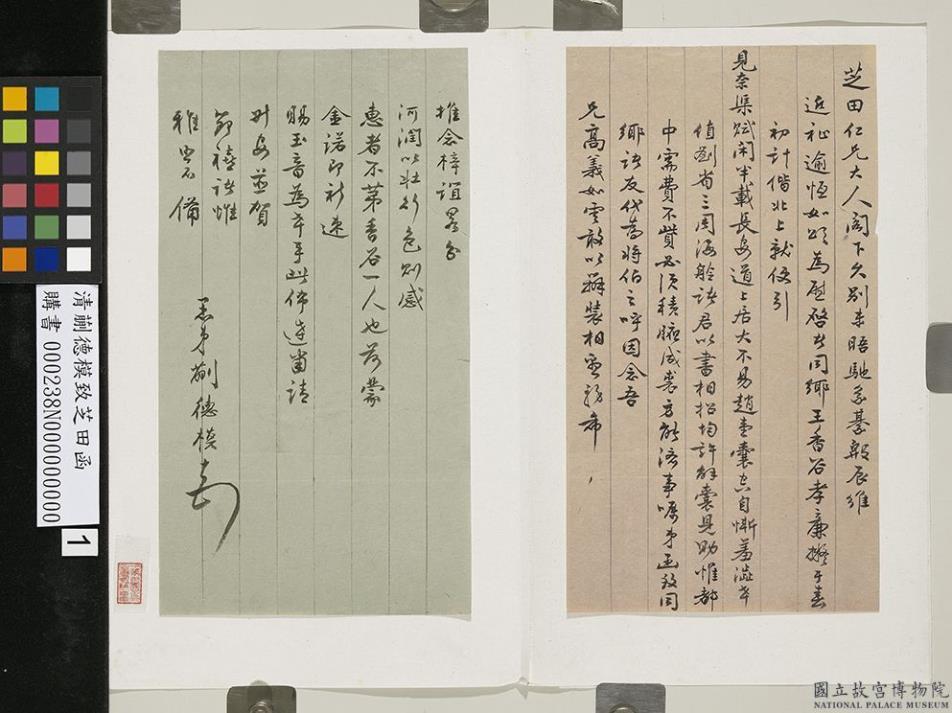 芝田仁兄大人閣下久別未晤馳系綦殷辰維
近祉逾恒如頌為慰啓者同鄉王香谷孝廉擬于春
初計偕北上就便引
見奈渠賦閑半載長安道上居大不易趙壹囊空自慚羞澀幸
值劉省三周海舲諸君以書相招均許解囊見助惟都
中需費不貲必須積腋成裘方能濟事囑弟函致同
鄉諸友代為將伯之呼因念吾
兄高義如雲敢以辦裝相望務希
推念梓誼畧分
河潤以壯行色則感
惠者不第香谷一人也若蒙
金諾即祈速
賜玉音為幸手此佈達肅請
升安並賀
節禧諸惟
雅照不備
愚弟蒯德模頓首
清蒯德模致芝田函
購書 000238N000000000
1
國立故宮博物院
NATIONAL PALACE MUSEUM